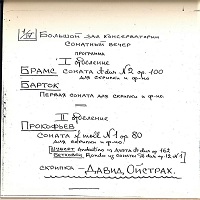 Большой зал консерватории
Сонатный вечер
программа
I отделение
Брамс соната A dur №2 op. 100
для скрипки и ф-но.
Барток
Первая соната для скрипки и ф-но.
II отделение
Прокофьев
соната f moll №1 op 80
для скрипки и ф-но!
Шуберт Andantino из дуэта A dur op 162
Бетховен Rondo из сонаты op. 12 №1
скрипка – Давид Ойстрах.